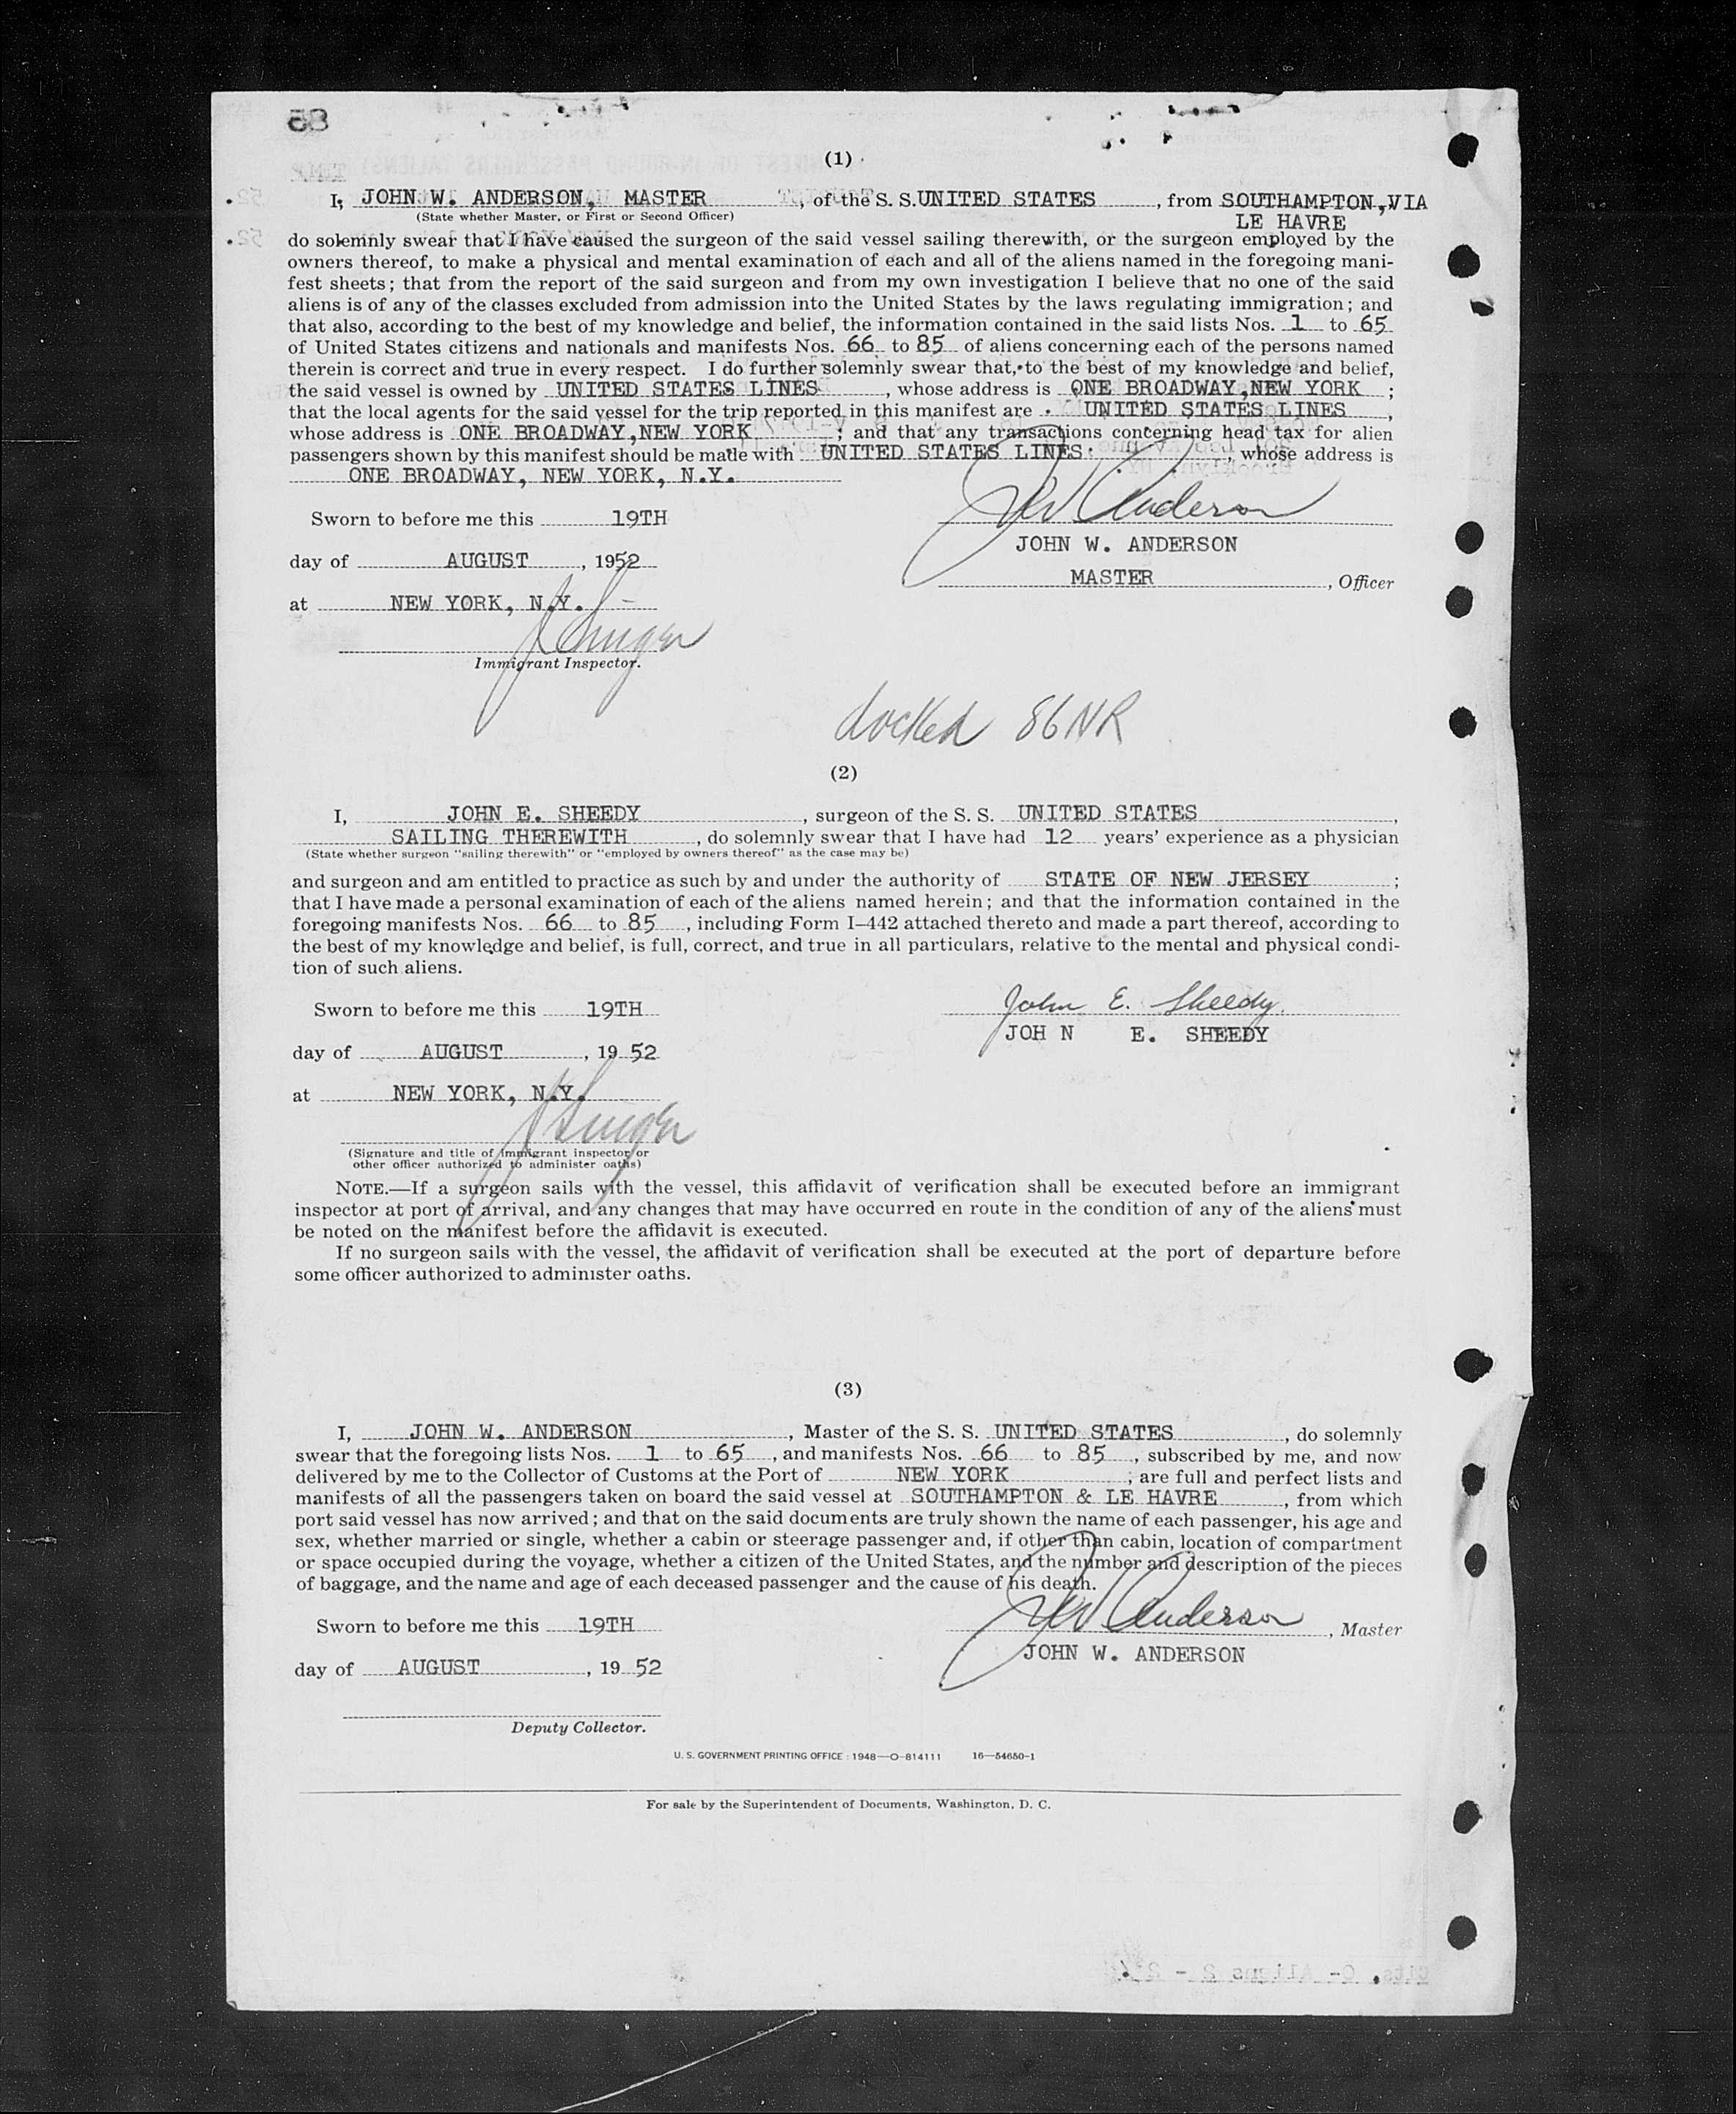 85
(1)
I, JOHN W. ANDERSON, MASTER, of the S. S. UNITED STATES, from SOUTHAMPTON, VIA
(State whether Master, or First or Second Officer) LE HAVRE
do solemnly swear that I have caused the surgeon of the said vessel sailing therewith, or the surgeon employed by the
owners thereof, to make a physical and mental examination of each and all of the aliens named in the foregoing mani-
fest sheets; that from the report of the said surgeon and from my own investigation I believe that no one of the said
aliens is of any of the classes excluded from admission into the United States by the laws regulating immigration; and
that also, according to the best of my knowledge and belief, the information contained in the said lists Nos. 1 to 65
of United States citizens and nationals and manifests Nos. 66 to 85 of aliens concerning each of the persons named
therein is correct and true in every respect. I do further solemnly swear that, to the best of my knowledge and belief,
the said vessel is owned by UNITED STATES LINES, whose address is ONE BROADWAY, NEW YORK;
that the local agents for the said vessel for the trip reported in this manifest are UNITED STATES LINES,
whose address is ONE BROADWAY, NEW YORK; and that any transactions concerning head tax for alien
passengers shown by this manifest should be made with UNITED STATES LINES, whose address is
ONE BROADWAY, NEW YORK, N.Y.
Sworn to before me this 19TH
JW Anderson
JOHN W. ANDERSON
day of AUGUST, 1952
MASTER, Officer
at NEW YORK, N.Y.
Immigrant Inspector.
docked 86 NR
(2)
I, JOHN E. SHEEDY, surgeon of the S. S. UNITED STATES,
SAILING THEREWITH, do solemnly swear that I have had 12 years' experience as a physician
(State whether surgeon "sailing therewith" or "employed by owners thereof" as the case may be)
and surgeon and am entitled to practice as such by and under the authority of STATE OF NEW JERSEY;
that I have made a personal examination of each of the aliens named herein; and that the information contained in the
foregoing manifests Nos. 66 to 85, including Form I-442 attached thereto and made a part thereof, according to
the best of my knowledge and belief, is full, correct, and true in all particulars, relative to the mental and physical condi-
tion of such aliens.
Sworn to before me this 19TH
John E. Sheedy
JOH N E. SHEEDY
day of AUGUST, 19 52
at NEW YORK, N.Y.
(Signature and title of immigrant inspector or
other officer authorized to administer oaths)
NOTE.—If a surgeon sails with the vessel, this affidavit of verification shall be executed before an immigrant
inspector at port of arrival, and any changes that may have occurred en route in the condition of any of the aliens must
be noted on the manifest before the affidavit is executed.
If no surgeon sails with the vessel, the affidavit of verification shall be executed at the port of departure before
some officer authorized to administer oaths.
(3)
I, JOHN W. ANDERSON, Master of the S. S. UNITED STATES, do solemnly
swear that the foregoing lists Nos. 1 to 65, and manifests Nos. 66 to 85, subscribed by me, and now
delivered by me to the Collector of Customs at the Port of NEW YORK; are full and perfect lists and
manifests of all the passengers taken on board the said vessel at SOUTHAMPTON & LE HAVRE, from which
port said vessel has now arrived; and that on the said documents are truly shown the name of each passenger, his age and
sex, whether married or single, whether a cabin or steerage passenger and, if other than cabin, location of compartment
or space occupied during the voyage, whether a citizen of the United States, and the number and description of the pieces
of baggage, and the name and age of each deceased passenger and the cause of his death.
Sworn to before me this 19TH
JW Anderson, Master
JOHN W. ANDERSON
day of AUGUST, 19 52
Deputy Collector.
U. S. GOVERNMENT PRINTING OFFICE : 1948—O-814111 16—54650-1
For sale by the Superintendent of Documents, Washington, D. C.